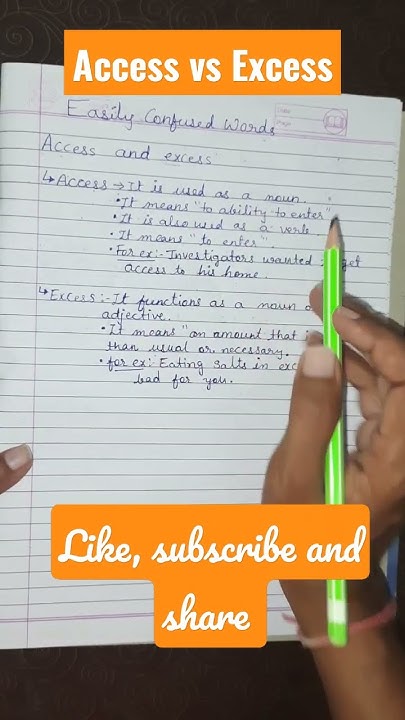 Access vs Excess
Easily Confused Words
Date
Page
Access and excess
↳ Access → It is used as a noun.
• It means "to ability to enter"
• It is also used as a verb.
• It means "to enter".
• For ex:- Investigators wanted get
access to his home.
↳ Excess:- It functions as a noun
adjective.
• It means "an amount that
than usual or necessary.
• for ex: Eating salts in
bad for you.
Like, subscribe and
share